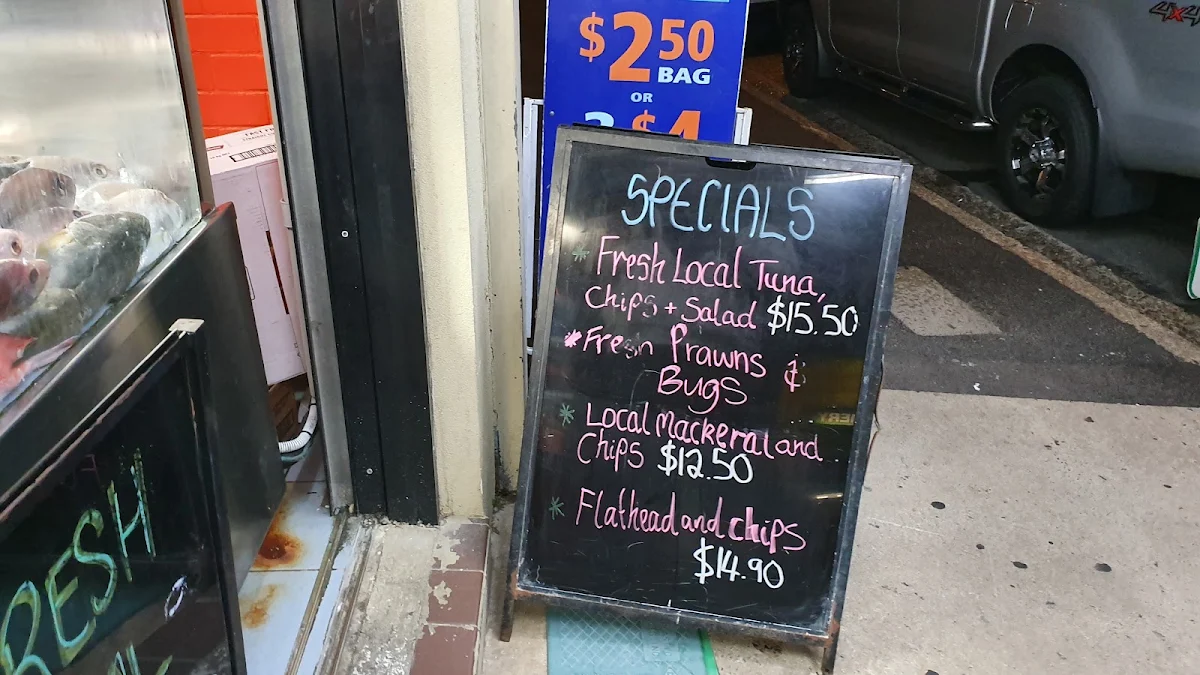 $2.50
BAG
OR
$4
SPECIALS
* Fresh Local Tuna,
Chips + Salad $15.50
* Fresh Prawns &
Bugs
* Local Mackeral and
Chips $12.50
* Flathead and chips
$14.90
RESH
4x4